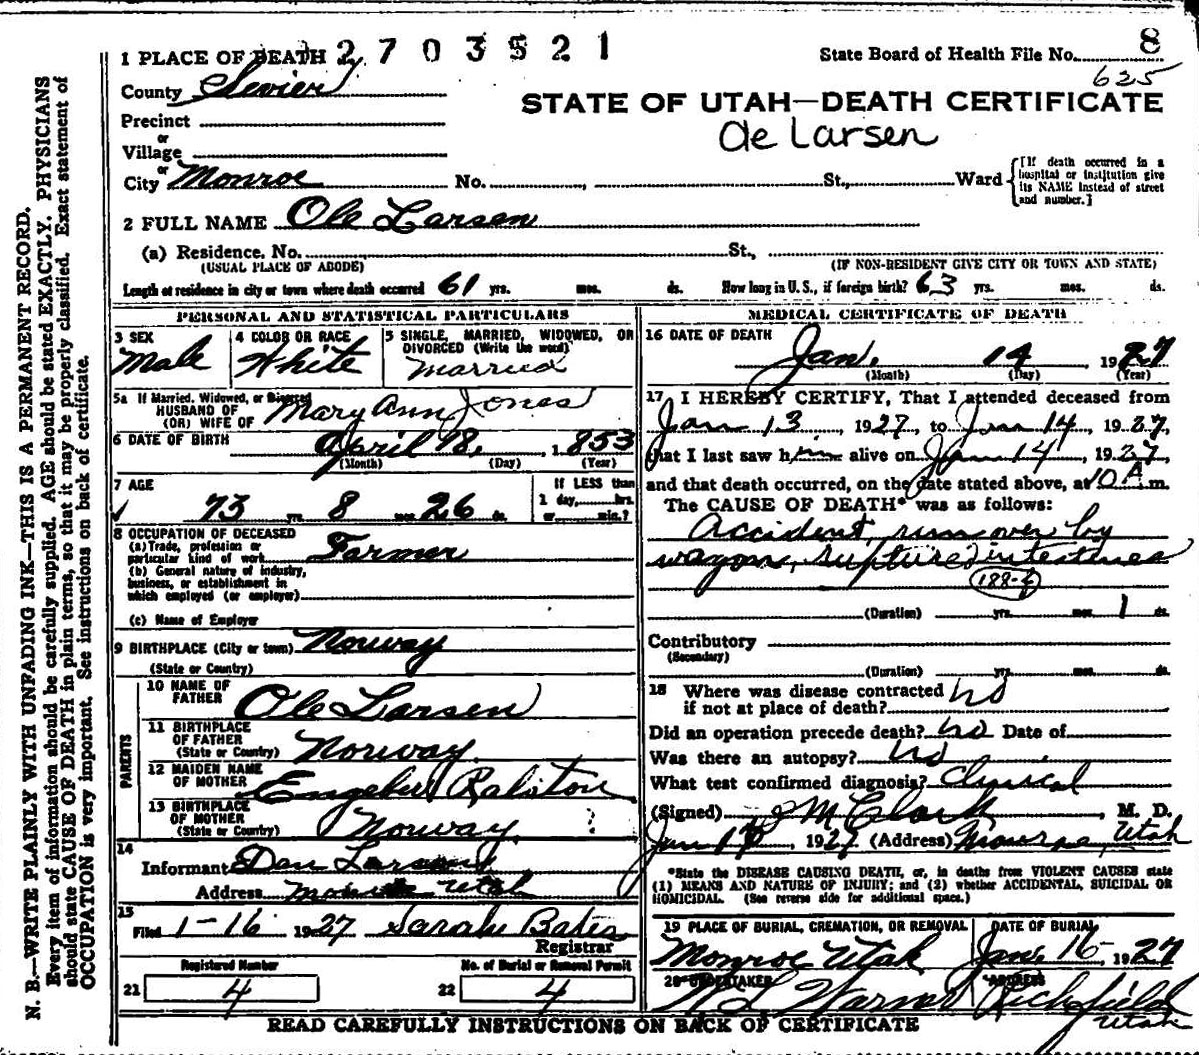 2703521
State Board of Health File No. 8
625
1 PLACE OF DEATH
County Sevier
STATE OF UTAH—DEATH CERTIFICATE
Ole Larsen
Precinct
or
Village
or
City Monroe No. , St., Ward
[If death occurred in a hospital or institution give its NAME instead of street and number.]
2 FULL NAME Ole Larsen
(a) Residence. No. St.,
(USUAL PLACE OF ABODE) (IF NON-RESIDENT GIVE CITY OR TOWN AND STATE)
Length of residence in city or town where death occurred 61 yrs. mos. ds. How long in U.S., if foreign birth? 63 yrs. mos. ds.
PERSONAL AND STATISTICAL PARTICULARS
3 SEX
Male
4 COLOR OR RACE
White
5 SINGLE, MARRIED, WIDOWED, OR
DIVORCED (Write the word)
Married
5a If Married, Widowed, or Divorced
HUSBAND OF
(OR) WIFE OF Mary Ann Jones
6 DATE OF BIRTH April 18, 1853
(Month) (Day) (Year)
7 AGE
73 yrs. 8 mos. 26 ds.
If LESS than
1 day, hrs.
or min.?
8 OCCUPATION OF DECEASED
(a) Trade, profession or
particular kind of work Farmer
(b) General nature of industry,
business, or establishment in
which employed (or employer)
(c) Name of Employer
9 BIRTHPLACE (City or town) Norway
(State or Country)
PARENTS
10 NAME OF
FATHER Ole Larsen
11 BIRTHPLACE
OF FATHER
(State or Country) Norway
12 MAIDEN NAME
OF MOTHER Ralston
13 BIRTHPLACE
OF MOTHER
(State or Country) Norway ?
14
Informant Dan Larsen
Address Monroe Utah
15
Filed 1-16 1927 Sarah Bates
Registrar
Registered Number No. of Burial or Removal Permit
21 4 22 4
MEDICAL CERTIFICATE OF DEATH
16 DATE OF DEATH
Jan. 14 1927
(Month) (Day) (Year)
17 I HEREBY CERTIFY, That I attended deceased from
Jan 13, 1927, to Jan 14, 1927,
that I last saw him alive on Jan 14, 1927,
and that death occurred, on the date stated above, at 10 A m.
The CAUSE OF DEATH* was as follows:
Accident, run over by
wagon, ruptured intestines
188-6
(Duration) yrs. mos. 1 ds.
Contributory
(Secondary)
(Duration) yrs. mos. ds.
18 Where was disease contracted
if not at place of death? no
Did an operation precede death? no Date of
Was there an autopsy? no
What test confirmed diagnosis? Clinical
(Signed) J M Clark, M. D.
Jan 1927 (Address) Monroe, Utah
*State the DISEASE CAUSING DEATH, or, in deaths from VIOLENT CAUSES state
(1) MEANS AND NATURE OF INJURY; and (2) whether ACCIDENTAL, SUICIDAL OR
HOMICIDAL. (See reverse side for additional space.)
19 PLACE OF BURIAL, CREMATION, OR REMOVAL
Monroe Utah
DATE OF BURIAL
Jan. 16, 1927
20 UNDERTAKER
L Warner
ADDRESS
Richfield
Utah
READ CAREFULLY INSTRUCTIONS ON BACK OF CERTIFICATE
N. B.—WRITE PLAINLY WITH UNFADING INK—THIS IS A PERMANENT RECORD.
Every item of information should be carefully supplied. AGE should be stated EXACTLY. PHYSICIANS
should state CAUSE OF DEATH in plain terms, so that it may be properly classified. Exact statement of
OCCUPATION is very important. See instructions on back of certificate.